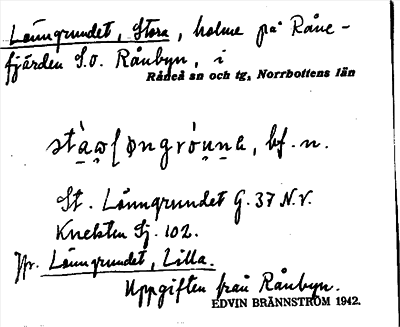 Lönngrundet, Stora, holme på Råne-
fjärden S.O. Rånbyn, i
Råneå sn och tg, Norrbottens län
bf. n.
St. Lönngrundet G. 37 N.V.
Knekten Sj. 102.
Jfr. Lönngrundet, Lilla.
Uppgiften från Rånbyn.
EDVIN BRÄNNSTRÖM 1942.